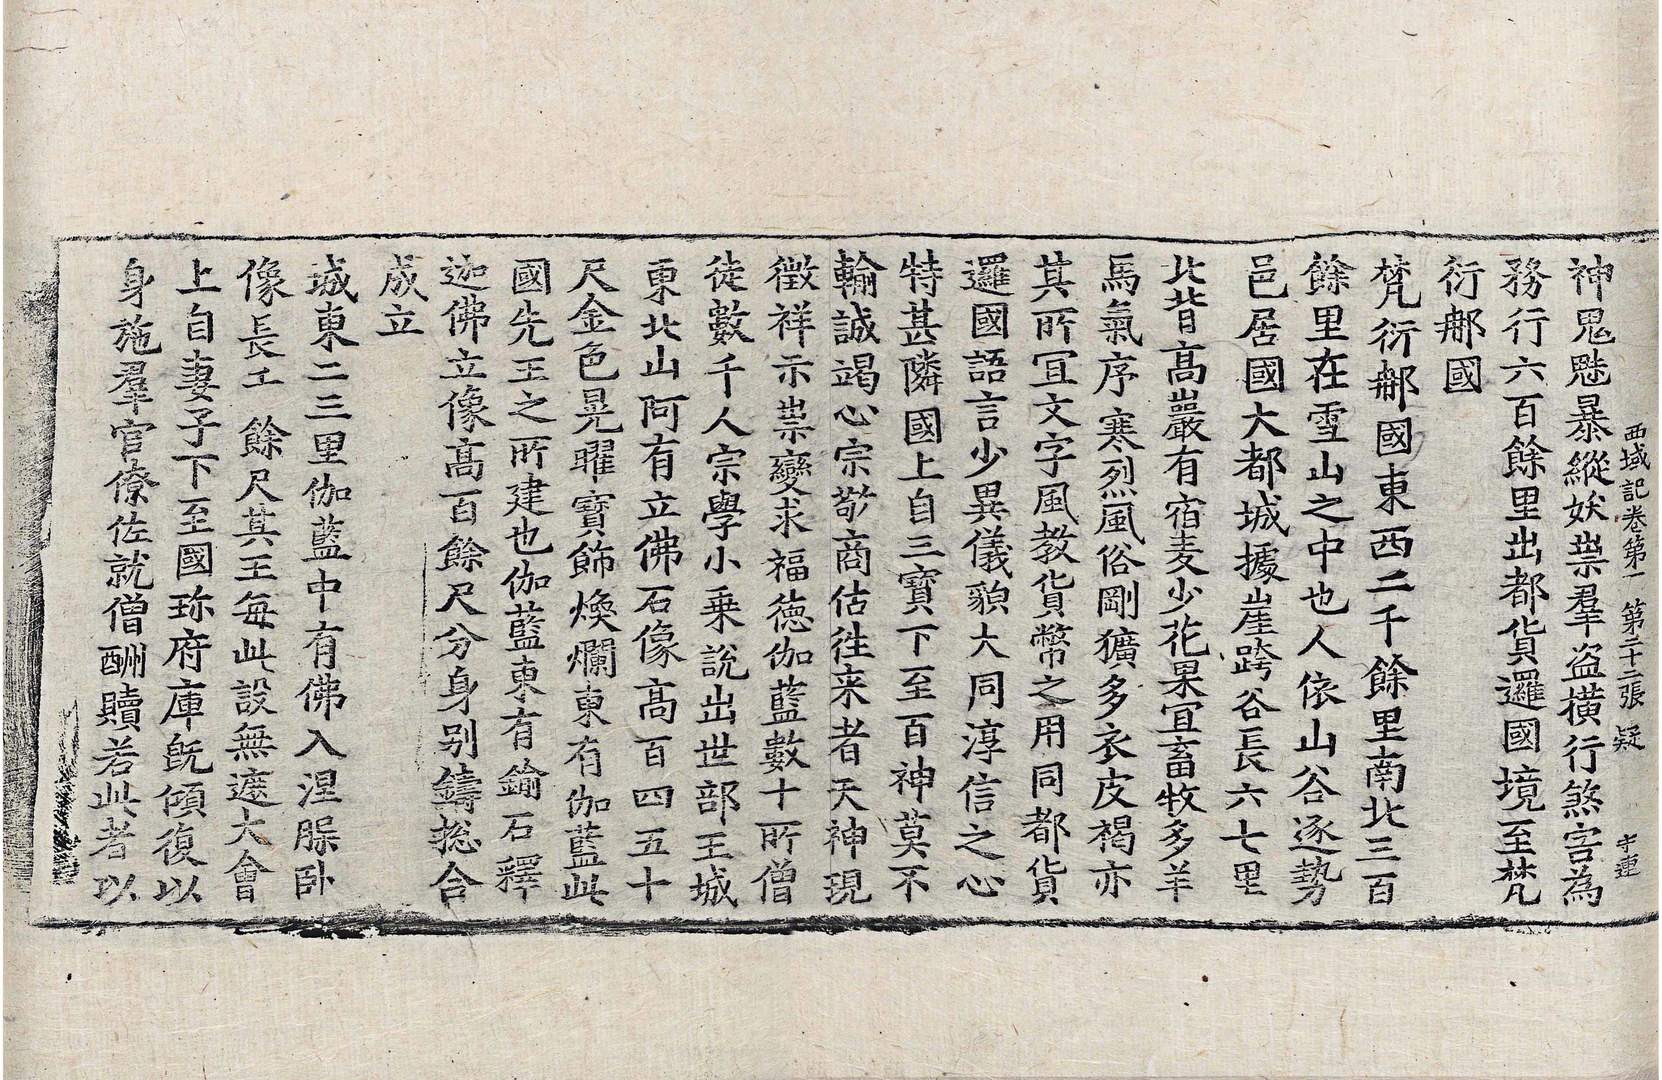 西域記卷第一 第二十二張 疑
神鬼魅暴縱妖祟羣盜橫行煞害為
務行六百餘里出都貨邏國境至梵
衍𨙻國
梵衍𨙻國東西二千餘里南北三百
餘里在雪山之中也人依山谷逐勢
邑居國大都城據崖跨谷長六七里
北背高巖有宿麦少花果冝畜牧多羊
馬氣序寒烈風俗剛獷多衣皮褐亦
其所冝文字風教貨幣之用同都貨
邏國語言少異儀貌大同淳信之心
特甚隣國上自三寶下至百神莫不
輸誠竭心宗敬商估往来者天神現
徵祥示祟變求福德伽藍數十所僧
徒數千人宗學小乗說出世部王城
東北山阿有立佛石像高百四五十
尺金色晃曜寶飾煥爛東有伽藍此
國先王之所建也伽藍東有鍮石釋
迦佛立像高百餘尺分身別鑄捴合
成立
城東二三里伽藍中有佛入涅槃卧
像長 餘尺其王每此設無遮大會
上自妻子下至國珎府庫既傾復以
身施羣官僚佐就僧酬贖若此者以